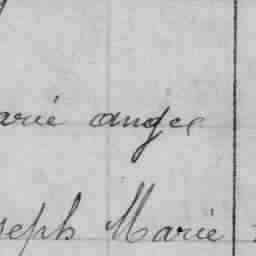 arie ange
seph Marie